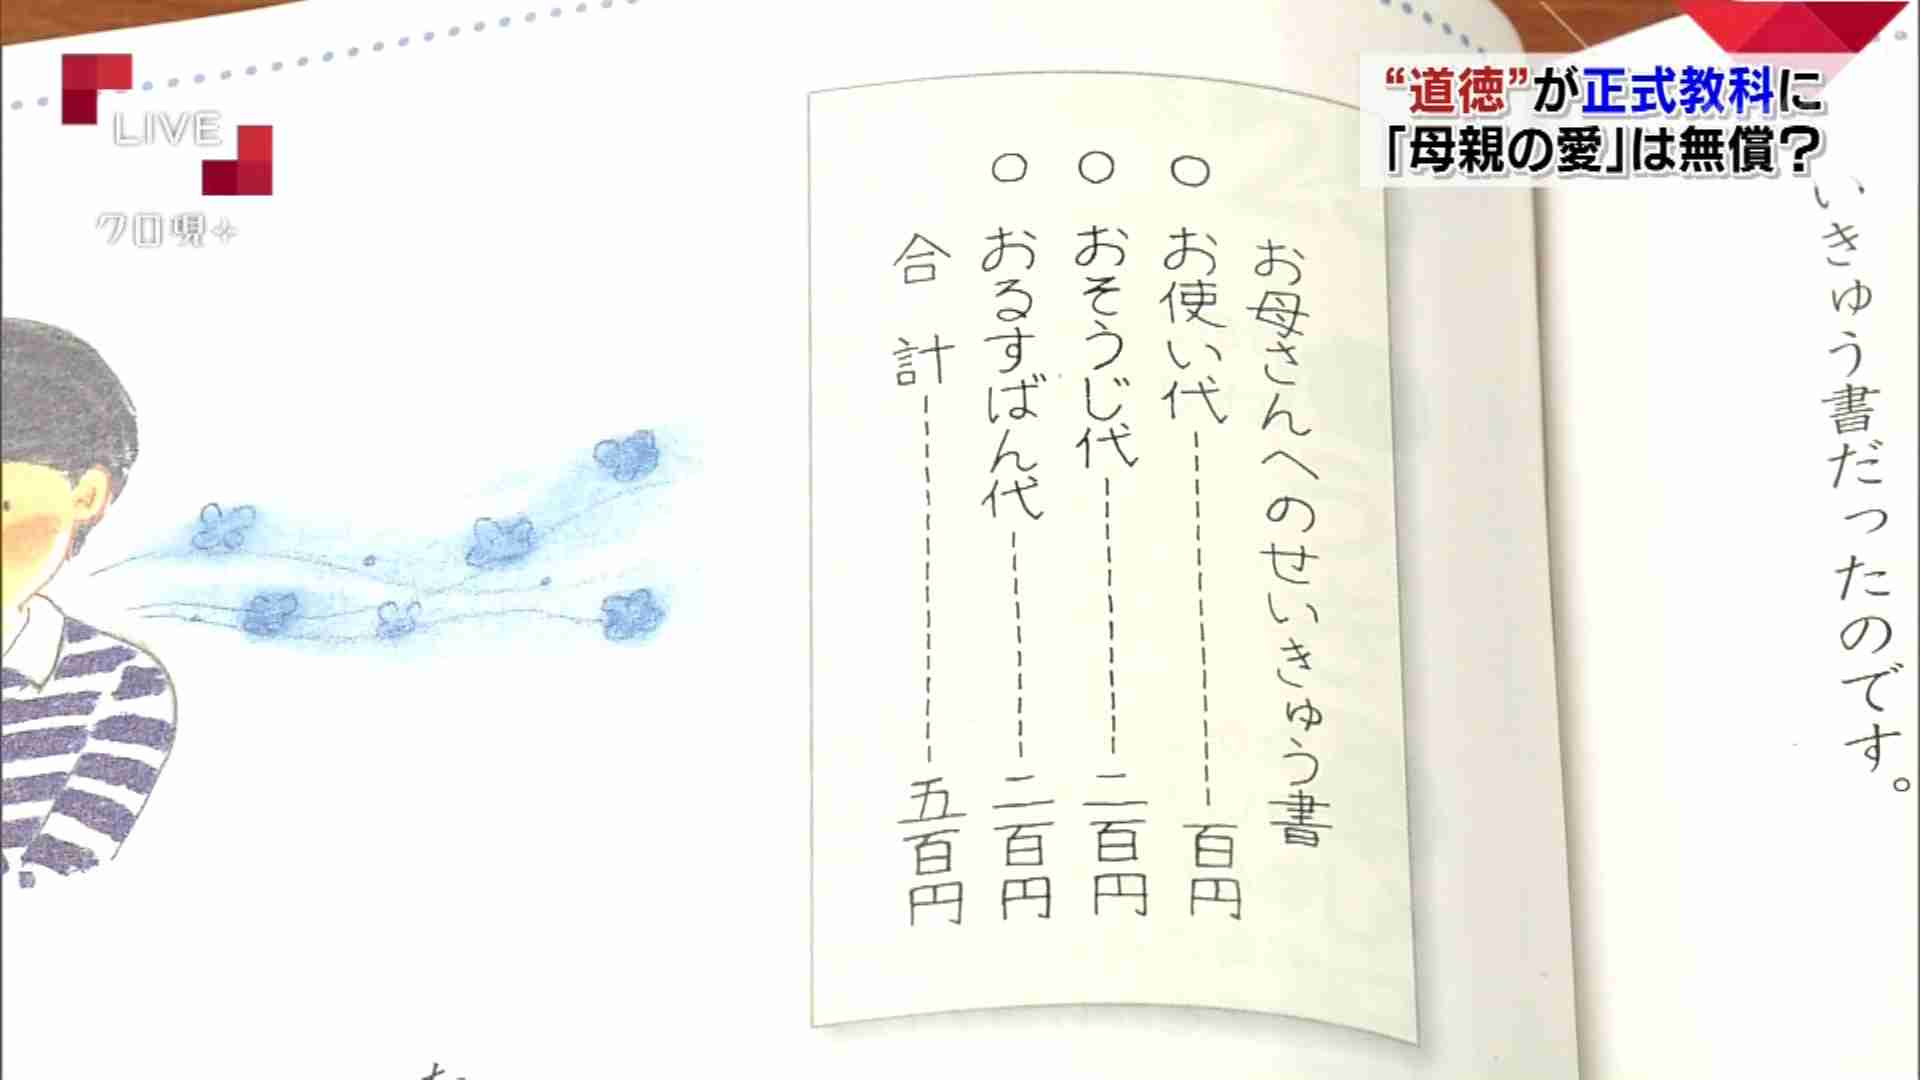 LIVE
クロ現+
“道徳”が正式教科に
「母親の愛」は無償？
いきゅう書だったのです。
お母さんへのせいきゅう書
○ お使い代------百円
○ おそうじ代------二百円
○ おるすばん代------二百円
合計------五百円